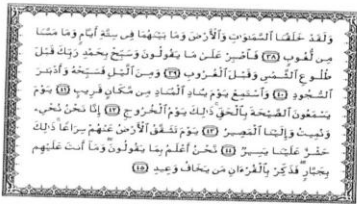 وَلَقَدْ خَلَقْنَا السَّمَاوَاتِ وَالْأَرْضَ وَمَا بَيْنَهُمَا فِي سِتَّةِ أَيَّامٍ وَمَا مَسَّنَا
مِن لُّغُوبٍ ﴿٣٨﴾ فَاصْبِرْ عَلَىٰ مَا يَقُولُونَ وَسَبِّحْ بِحَمْدِ رَبِّكَ قَبْلَ
طُلُوعِ الشَّمْسِ وَقَبْلَ الْغُرُوبِ ﴿٣٩﴾ وَمِنَ اللَّيْلِ فَسَبِّحْهُ وَأَدْبَارَ
السُّجُودِ ﴿٤٠﴾ وَاسْتَمِعْ يَوْمَ يُنَادِ الْمُنَادِ مِن مَّكَانٍ قَرِيبٍ ﴿٤١﴾ يَوْمَ
يَسْمَعُونَ الصَّيْحَةَ بِالْحَقِّ ذَٰلِكَ يَوْمُ الْخُرُوجِ ﴿٤٢﴾ إِنَّا نَحْنُ نُحْيِي
وَنُمِيتُ وَإِلَيْنَا الْمَصِيرُ ﴿٤٣﴾ يَوْمَ تَشَقَّقُ الْأَرْضُ عَنْهُمْ سِرَاعًا ذَٰلِكَ
حَشْرٌ عَلَيْنَا يَسِيرٌ ﴿٤٤﴾ نَّحْنُ أَعْلَمُ بِمَا يَقُولُونَ وَمَا أَنتَ عَلَيْهِم
بِجَبَّارٍ فَذَكِّرْ بِالْقُرْآنِ مَن يَخَافُ وَعِيدِ ﴿٤٥﴾